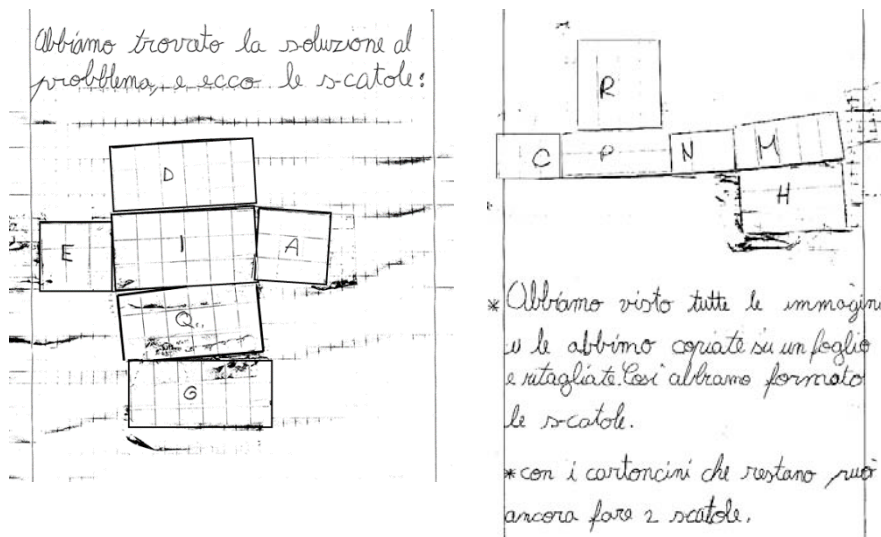 Abbiamo trovato la soluzione al
probblema, e ecco le scatole:
D
E I A
Q
G
R
C P N M
H
* Abbiamo visto tutte le immagini
e le abbimo copiate su un foglio
e ritagliate. Cosi abbiamo formato
le scatole.
* con i cartoncini che restano può
ancora fare 2 scatole.